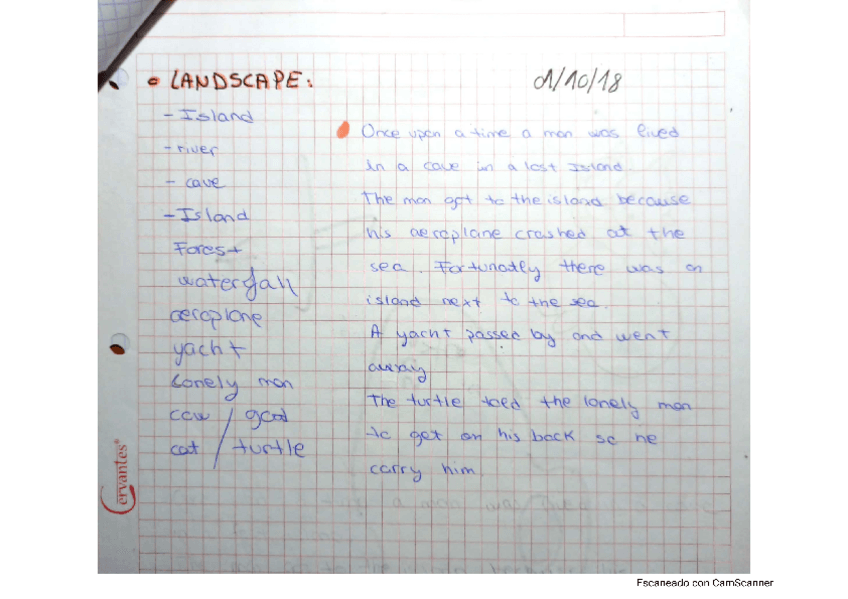 • LANDSCAPE:
01/10/18
- Island
- river
- cave
- Island
Forest
waterfall
aeroplane
yacht
Lonely man
cow / goat
cat / turtle
Once upon a time a man was lived
in a cave in a lost Island
The man got to the island because
his aeroplane crashed at the
sea. Fortunatly there was an
island next to the sea.
A yacht passed by and went
away
The turtle toled the lonely man
to get on his back so he
carry him.
Cervantes
Escaneado con CamScanner